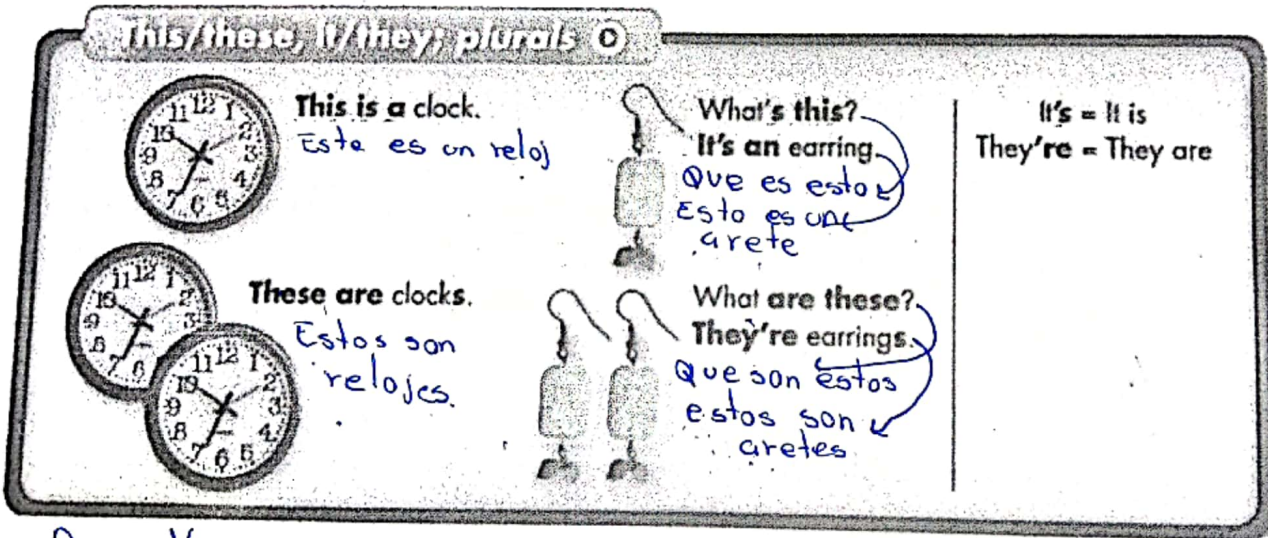 This/these, it/they; plurals
This is a clock.
Este es un reloj
These are clocks.
Estos son
relojes.
What's this?
It's an earring.
Que es esto
Esto es un
arete
What are these?
They're earrings.
Que son estos
estos son
aretes
It's = It is
They're = They are